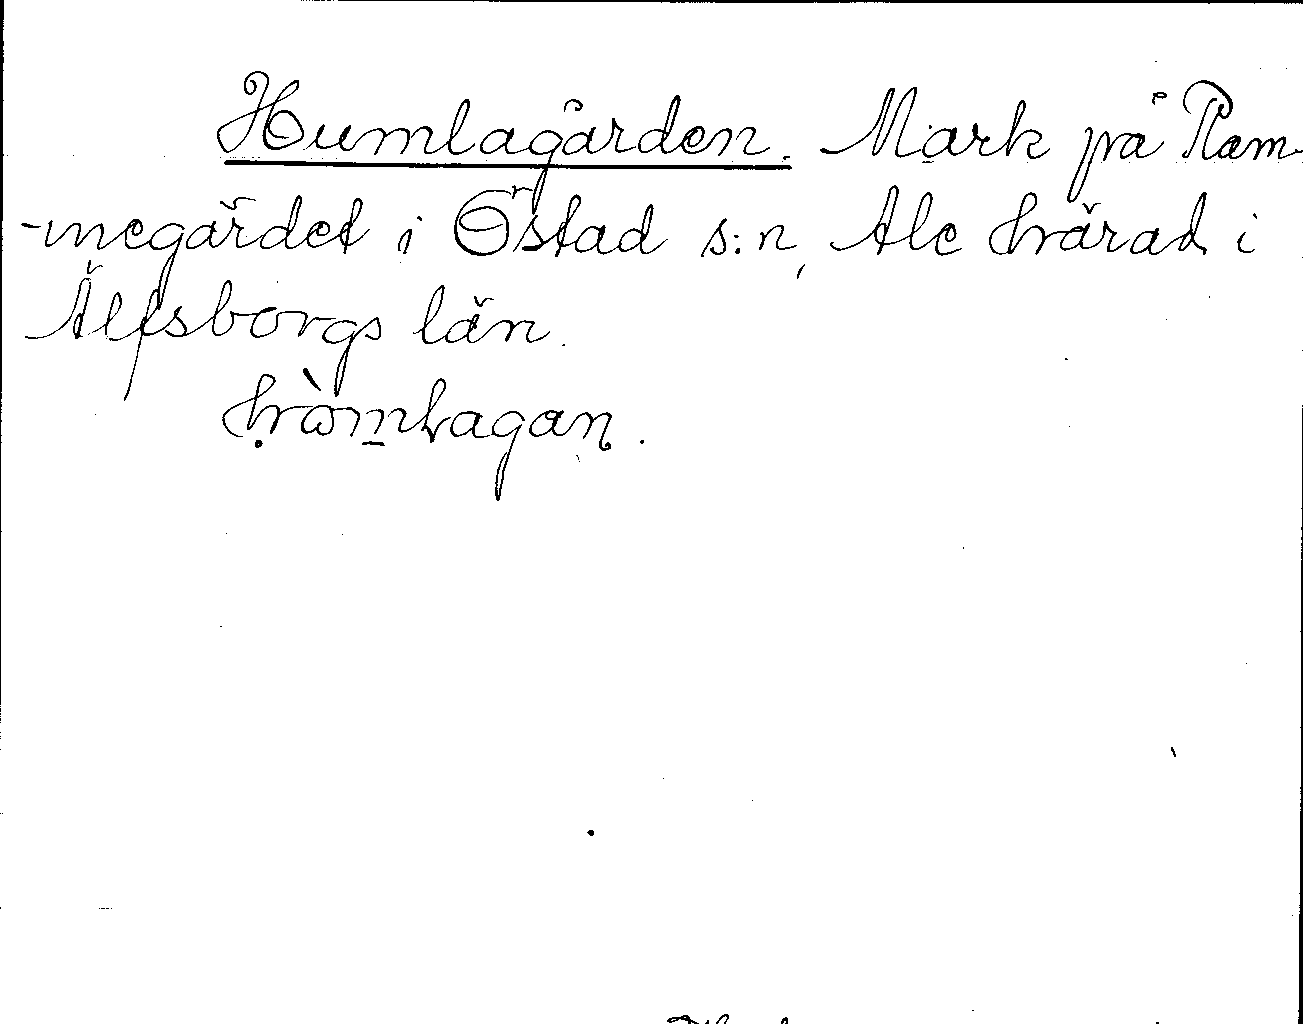 Humlagården. Mark på Ram-
-megärdet i Östad s:n, Ale härad i
Älfsborgs län.